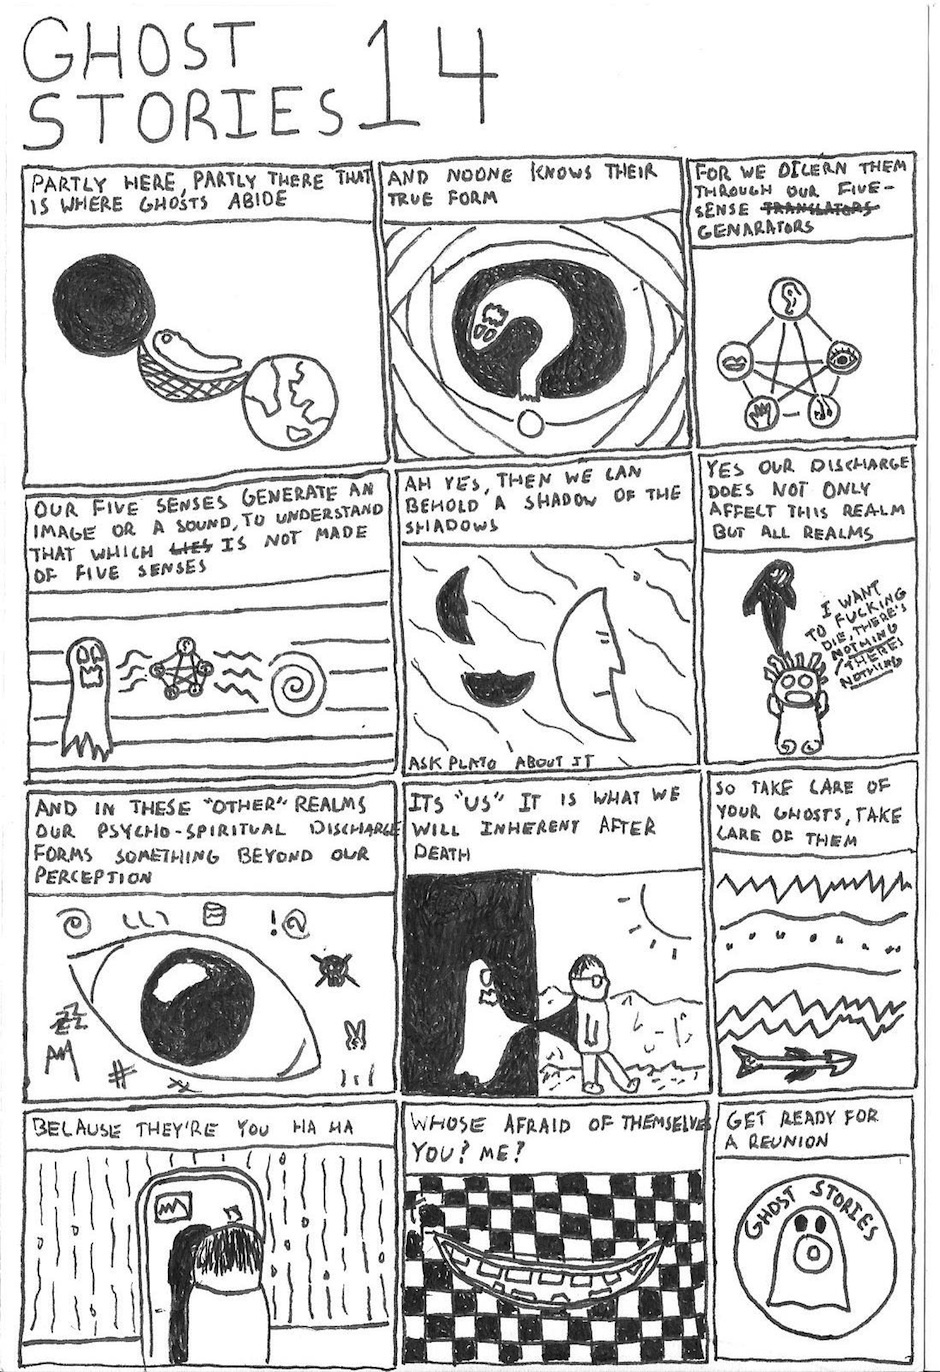 GHOST
STORIES 14
PARTLY HERE, PARTLY THERE THAT
IS WHERE GHOSTS ABIDE
AND NOONE KNOWS THEIR
TRUE FORM
FOR WE DICERN THEM
THROUGH OUR FIVE-
SENSE TRANSLATORS
GENARATORS
OUR FIVE SENSES GENERATE AN
IMAGE OR A SOUND, TO UNDERSTAND
THAT WHICH LIES IS NOT MADE
OF FIVE SENSES
AH YES, THEN WE CAN
BEHOLD A SHADOW OF THE
SHADOWS
ASK PLATO ABOUT IT
YES OUR DISCHARGE
DOES NOT ONLY
AFFECT THIS REALM
BUT ALL REALMS
I WANT
TO FUCKING
DIE, THERE'S
NOTHING
THERE'S
NOTHING
AND IN THESE "OTHER" REALMS
OUR PSYCHO-SPIRITUAL DISCHARGE
FORMS SOMETHING BEYOND OUR
PERCEPTION
!@
#
ITS "US" IT IS WHAT WE
WILL INHERENT AFTER
DEATH
SO TAKE CARE OF
YOUR GHOSTS, TAKE
CARE OF THEM
BECAUSE THEY'RE YOU HA HA
WHOSE AFRAID OF THEMSELVES
YOU? ME?
GET READY FOR
A REUNION
GHOST STORIES